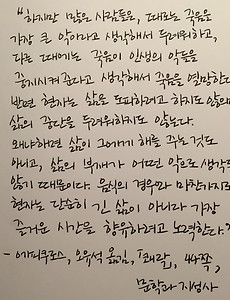 "하지만 많은 사람들은, 때로는 죽음을
가장 큰 악이라고 생각해서 두려워하고,
다른 때에는 죽음이 인생의 악들을
중지시켜 준다고 생각해서 죽음을 열망한다.
반면 현자는 삶을 도피하려고 하지도 않으며
삶의 중단을 두려워하지도 않는다.
왜냐하면 삶이 그에게 해를 주는 것도
아니고, 삶의 부재가 어떤 악으로 생각되지
않기 때문이다. 음식의 경우와 마찬가지로
현자는 단순히 긴 삶이 아니라 가장
즐거운 시간을 향유하려고 노력한다."
- 에피쿠로스, 오유석 옮김, 『쾌락』, 44쪽,
문학과지성사